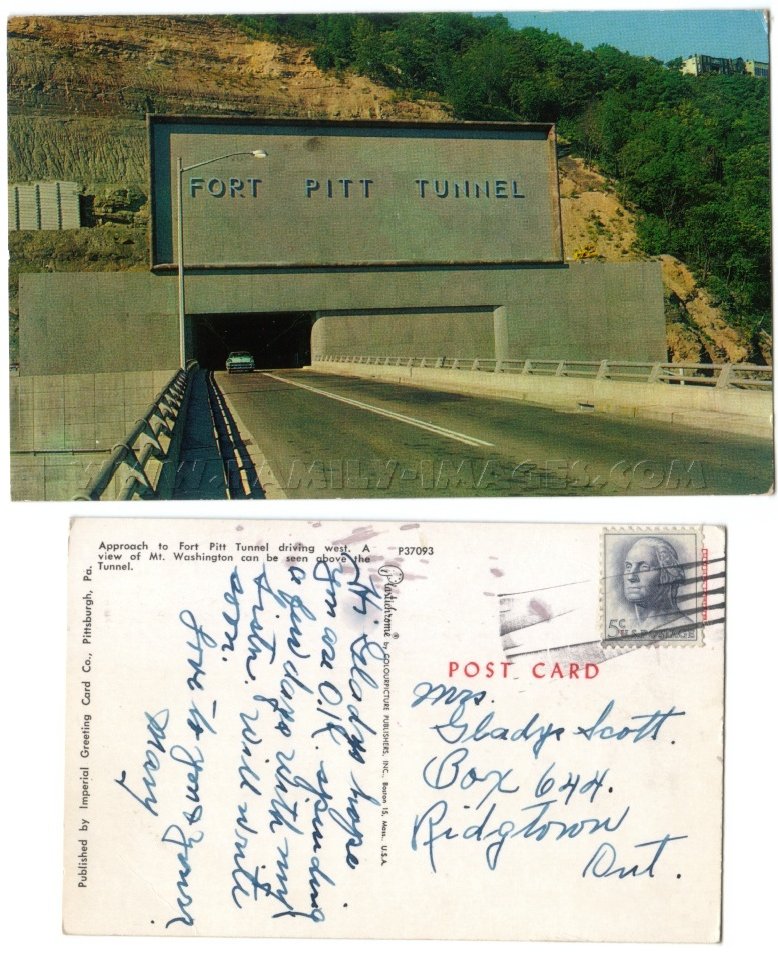 FORT PITT TUNNEL
WWW.FAMILY-IMAGES.COM
Approach to Fort Pitt Tunnel driving west. A
view of Mt. Washington can be seen above the
Tunnel.
P37093
Published by Imperial Greeting Card Co., Pittsburgh, Pa.
Plastichrome® by COLOURPICTURE PUBLISHERS, INC., Boston 15, Mass., U.S.A.
5c
U.S. POSTAGE
POST CARD
Hi Gladys hope
you are O.K. spending
a few days with my
sister. will write
soon.
Love to you &
Mary
Mrs.
Gladys Scott.
Box 644.
Ridgtown
Ont.